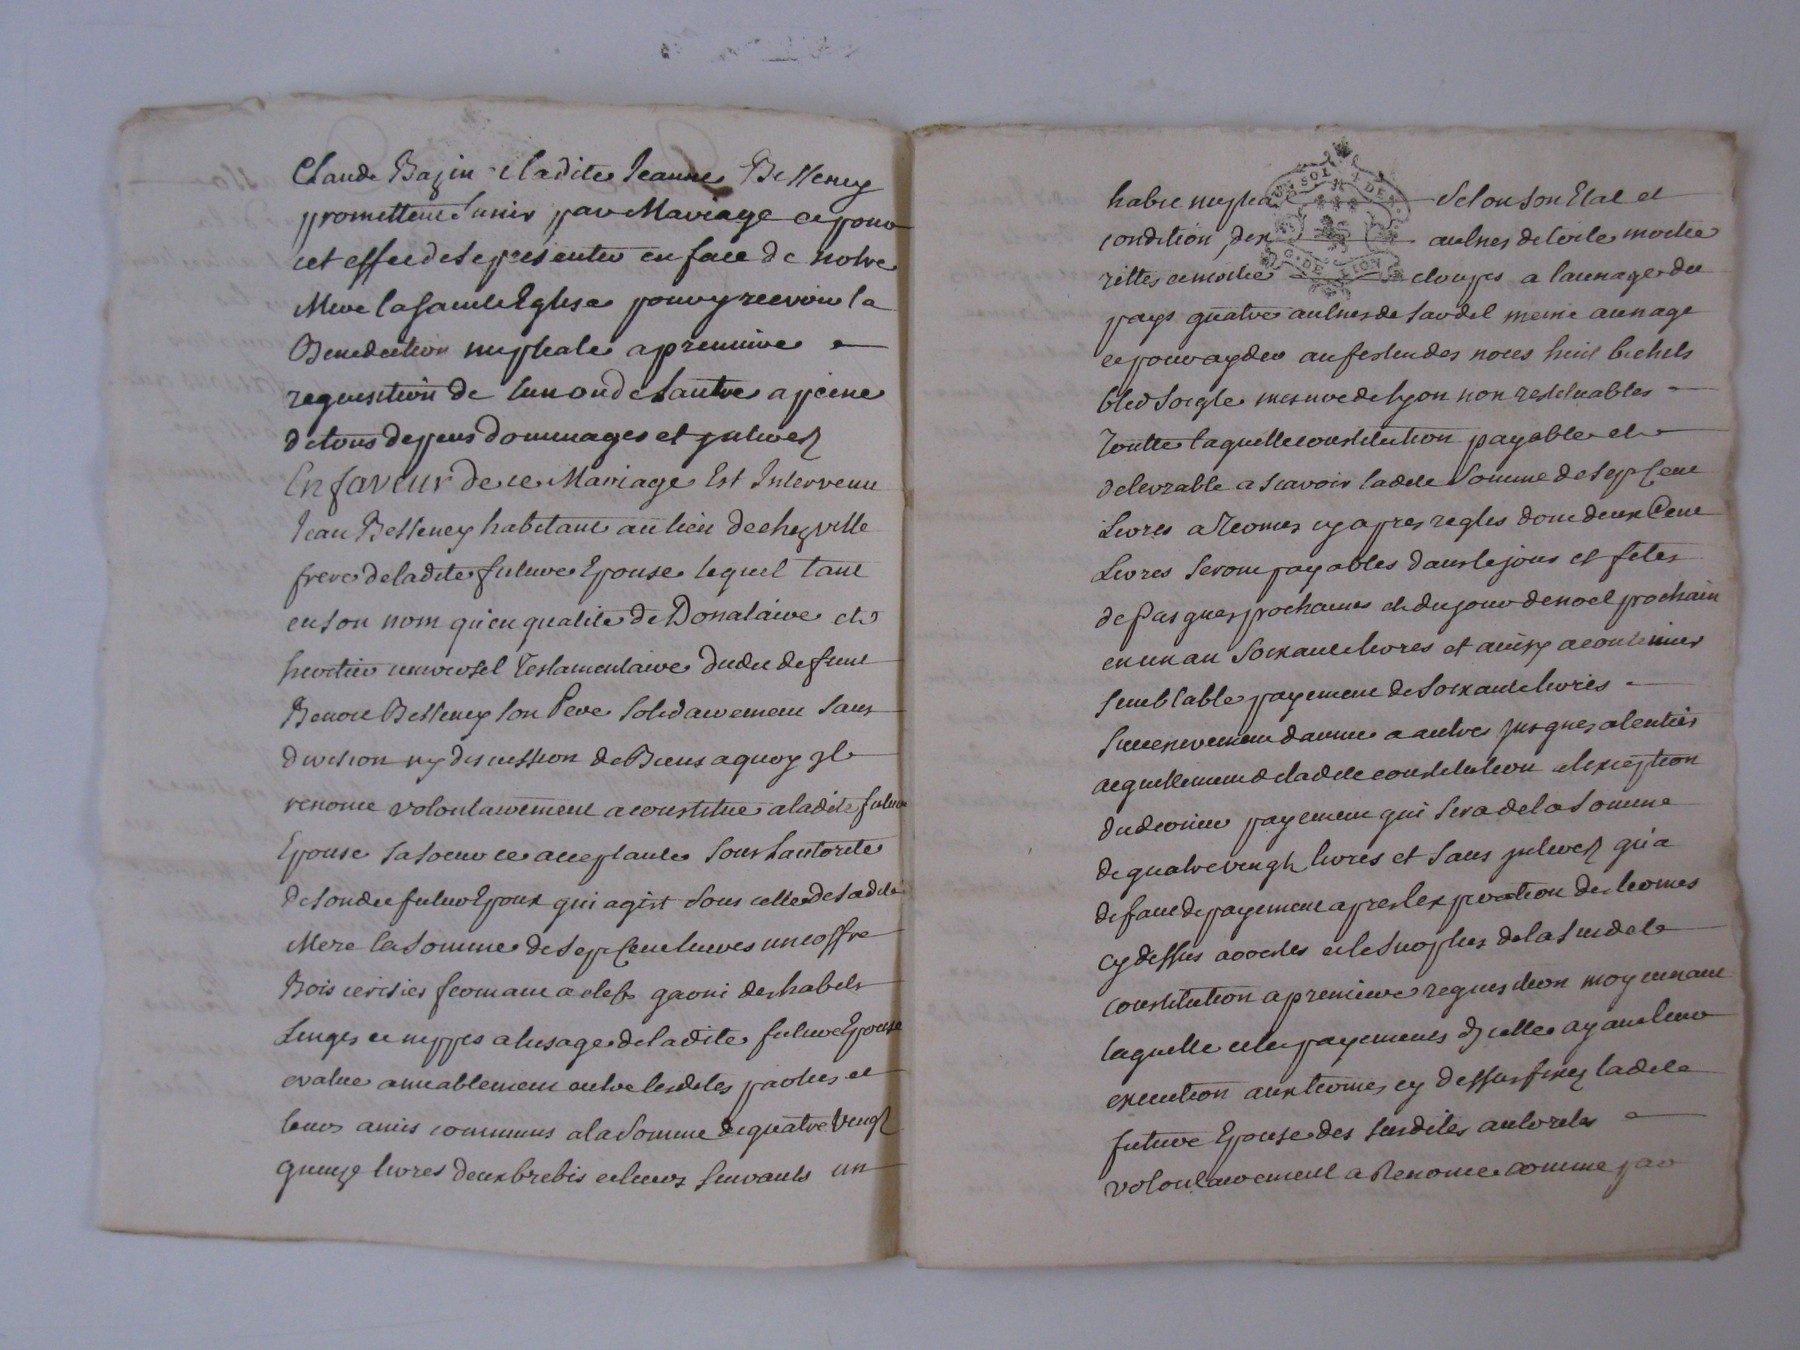 Claude Bazin et ladite Jeanne Besseney
promettent sunir par Mariage ce pour
cet effect de se presenter en face de notre
Mere la Sainte Eglise pour y recevoir la
Benediction nuptiale a premiere
requisition de lun ou de lautre a peine
de tous depens dommages et interez
En faveur de ce Mariage Est Intervenu
Jean Besseney habitant au lieu de chezville
frere de ladite future Epouse lequel tant
en son nom qu'en qualité de Donataire et
heritier universel Testamentaire dudit defunt
Benoit Besseney son Pere solidairement sans
division ny discussion de Biens a quoy Il
renonce volontairement a constitue a ladite future
Epouse sa soeur ce acceptante sous lautorite
de sondit futur Epoux qui agist sous celle de sadite
Mere la somme de sept Cent livres un coffre
Bois cerisier fermant a clefs garni des habits
Linges et nippes a lusage de ladite future Epouse
evalue amiablement entre lesdites parties et
leurs amis communs a la somme de quatre vingt
quinze livres deux brebis et leurs suivants un
habit nuptial selon son Etat et
condition dix aulnes de toile moitie
rittes et moitie etoupes a launage du
pays quatre aulnes de sardil meme aunage
et pour ayder au festin des noces huit bichets
bled soigle mesure de lyon non restituables
Toutte laquelle constitution payable et
delivrable a scavoir ladite somme de sept Cent
Livres a Termes cy apres regles dont deux Cent
Livres seront payables dans le jour et fetes
de Pasques prochaines et du jour de noel prochain
en un an soixante livres et ainsy a continuer
semblable payement de soixante livres
successivement dannee a autres jusques a lentier
acquittement de ladite constitution a lexception
du dernier payement qui sera de la somme
de quatre vingt livres et sans interez qu'a
defaut de payement apres lexpiration des termes
cy dessus accordes et le surplus de la susdite
constitution a premiere requisition moyennant
laquelle et les payements d icelle ayant leur
execution aux termes cy dessus fixez ladite
future Epouse des susdites autorites
volontairement a Renoncé comme par